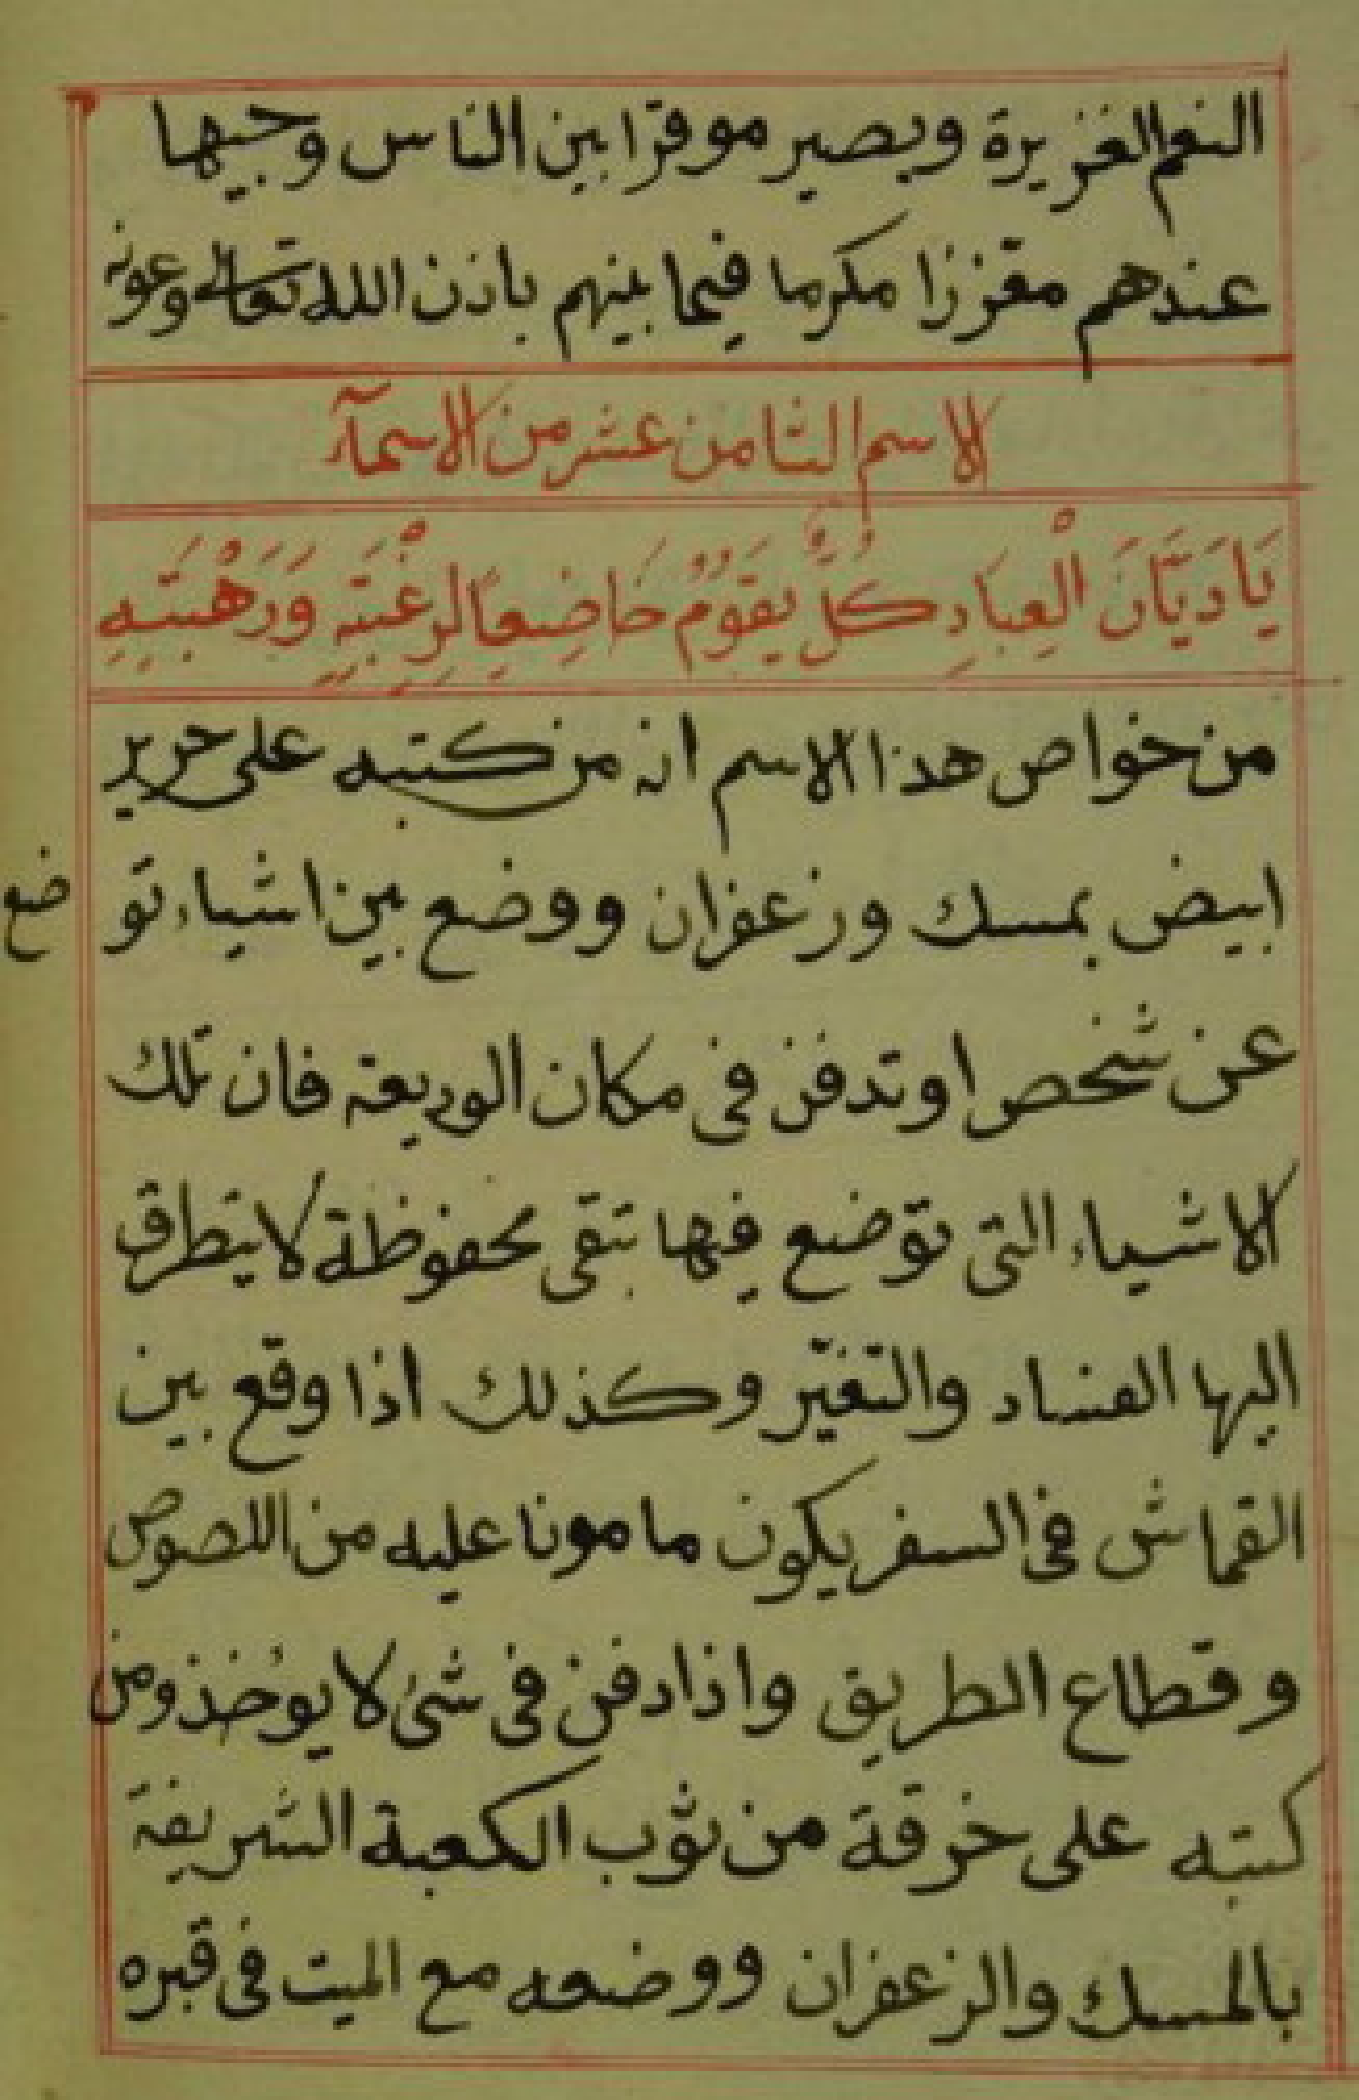 النعم الغزيرة ويصير موقرا بين الناس وجيها
عندهم معززا مكرما فيما بينهم باذن الله تعالى وعونه
الاسم الثامن عشر من الاسمآء
يَا دَيَّانَ الْعِبَادِ كُلٌّ يَقُومُ خَاضِعًا لِرَغْبَتِهِ وَرَهْبَتِهِ
من خواص هذا الاسم انه من كتبه على حرير
ابيض بمسك وزعفران ووضع بين اشياء توضع
عن شخص او تدفن فى مكان الوديعة فان تلك
الاشياء التى توضع فيها تبقى محفوظة لا يتطرق
اليها الفساد والتغيّر وكذلك اذا وقع بين
القماش فى السفر يكون مامونا عليه من اللصوص
وقطاع الطريق واذا دفن فى شئ لا يوخذ ومن
كتبه على خرقة من ثوب الكعبة الشريفة
بالمسك والزعفران ووضعه مع الميت فى قبره